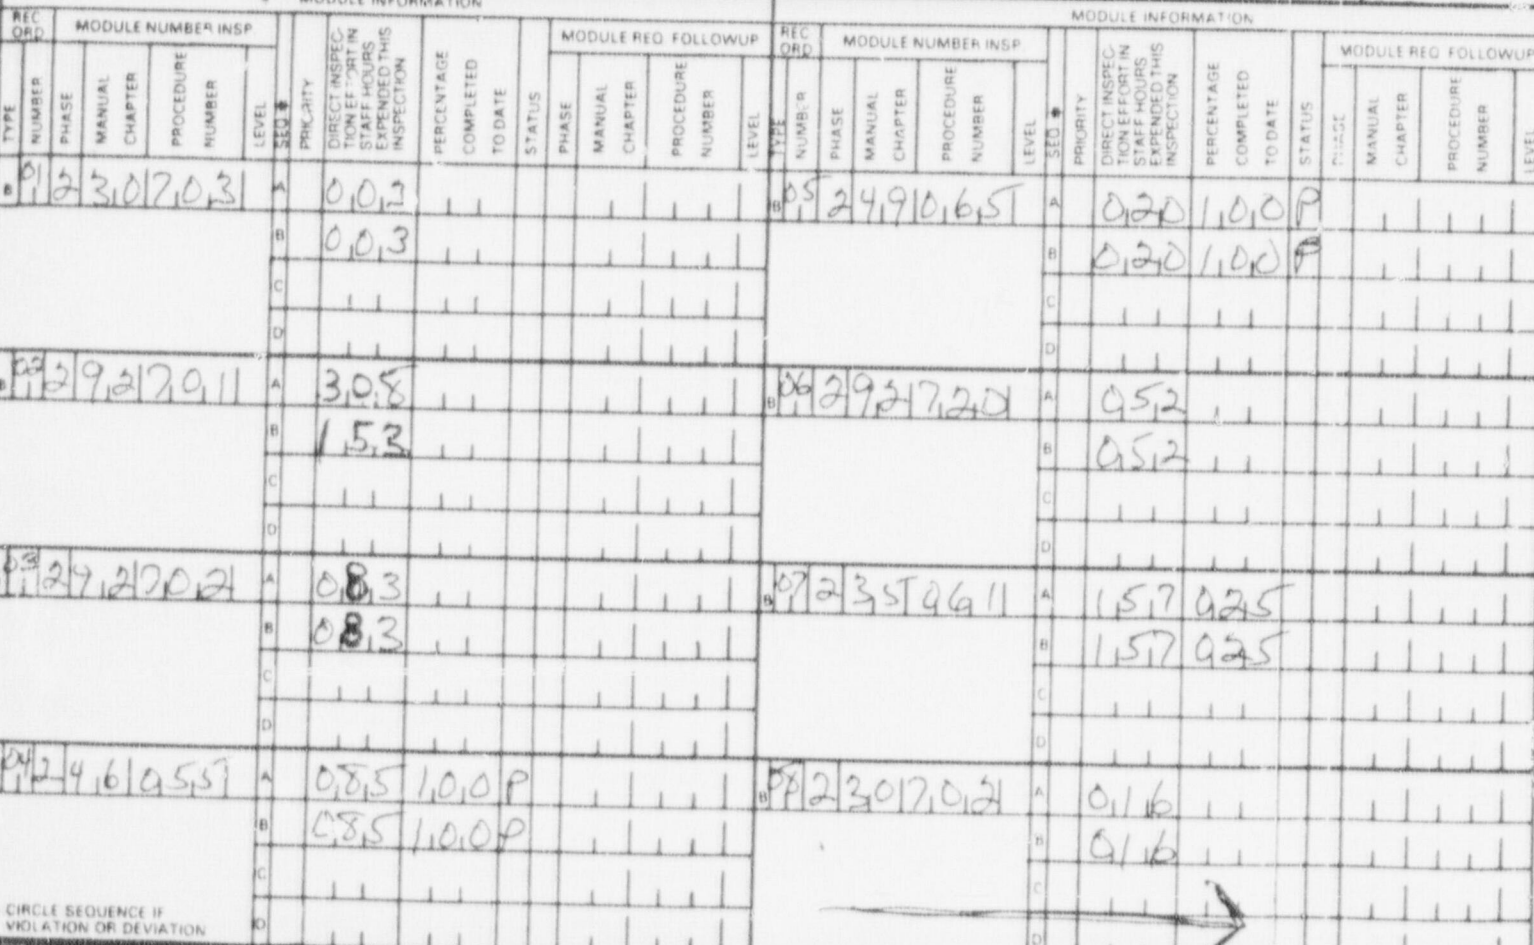 MODULE INFORMATION
REC ORD
MODULE NUMBER INSP
MODULE REQ. FOLLOWUP
TYPE
NUMBER
PHASE
MANUAL CHAPTER
PROCEDURE NUMBER
LEVEL
SEQ *
PRIORITY
DIRECT INSPEC-
TION EFFORT IN
STAFF HOURS
EXPENDED THIS
INSPECTION
PERCENTAGE COMPLETED TO DATE
STATUS
PHASE
MANUAL CHAPTER
PROCEDURE NUMBER
LEVEL
B 01 2 30 703 A 002
B 003
C
D
B 02 2 92 701 A 308
B 153
C
D
03 2 92 702 A 083
B 083
C
D
04 2 46 055 A 085 100 P
B 085 100 P
C
D
CIRCLE SEQUENCE IF
VIOLATION OR DEVIATION
MODULE INFORMATION
REC ORD
MODULE NUMBER INSP
MODULE REQ. FOLLOWUP
TYPE
NUMBER
PHASE
MANUAL CHAPTER
PROCEDURE NUMBER
LEVEL
SEQ *
PRIORITY
DIRECT INSPEC-
TION EFFORT IN
STAFF HOURS
EXPENDED THIS
INSPECTION
PERCENTAGE COMPLETED TO DATE
STATUS
PHASE
MANUAL CHAPTER
PROCEDURE NUMBER
LEVEL
B 05 2 49 065 A 020 100 P
B 020 100 P
C
D
B 06 2 92 720 A 052
B 052
C
D
B 07 2 35 061 A 157 025
B 157 025
C
D
B 08 2 30 702 A 016
B 016
C
D